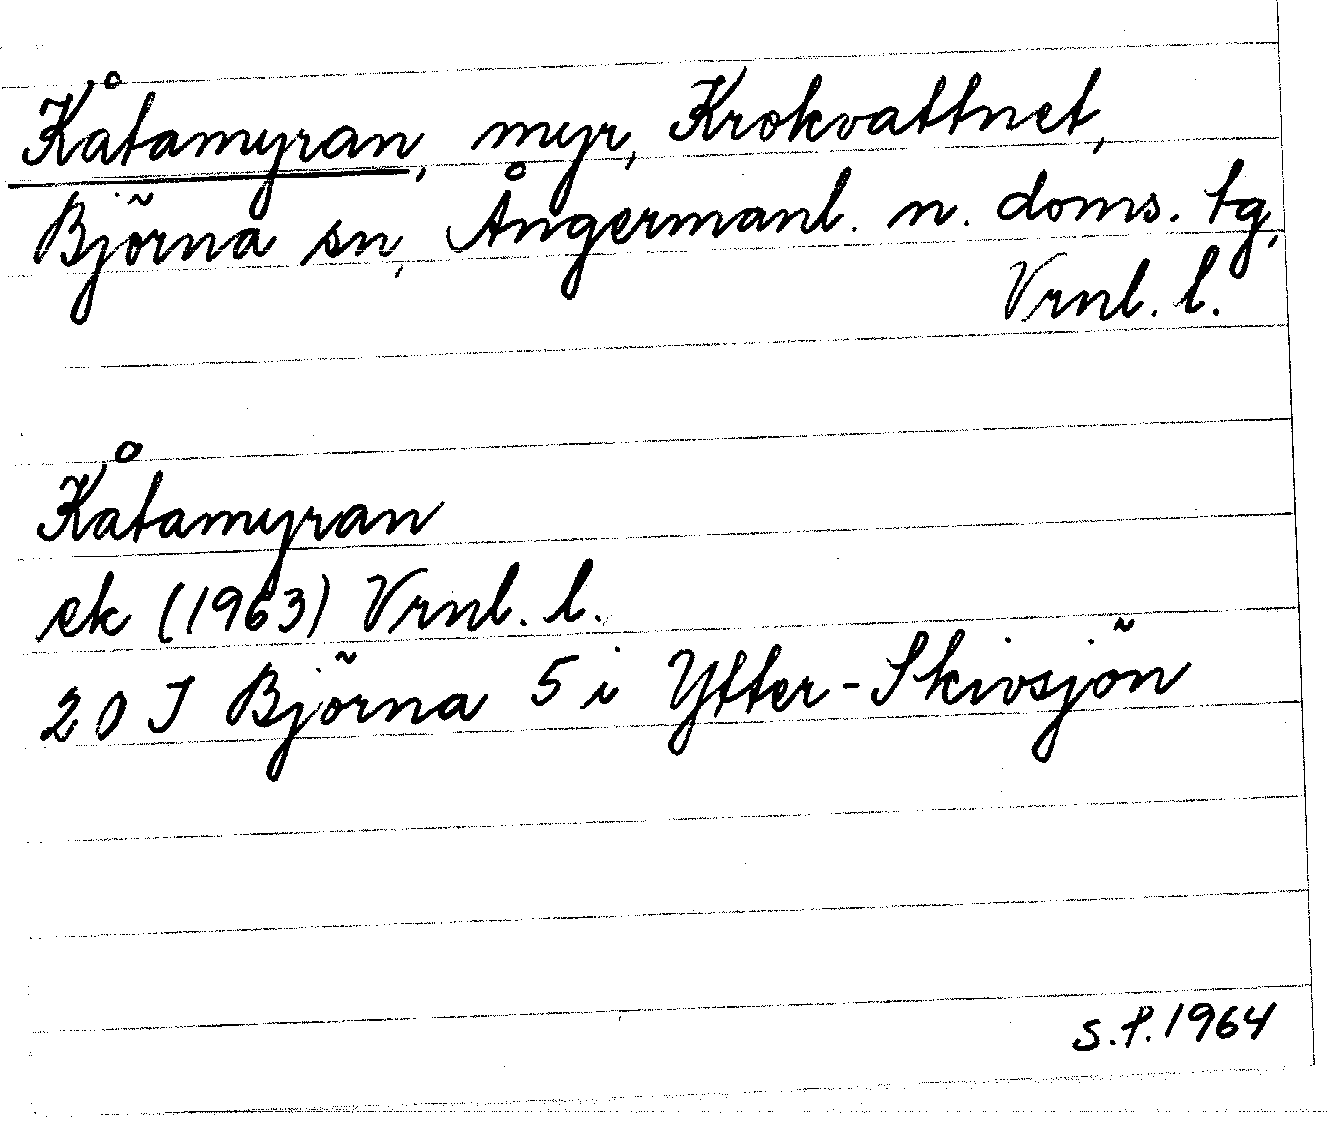 Kåtamyran, myr, Krokvattnet,
Björna sn, Ångermanl. n. doms. tg,
Vrnl. l.
Kåtamyran
ek (1963) Vrnl. l.
20 J Björna 5 i Ytter-Skivsjön
S.P. 1964